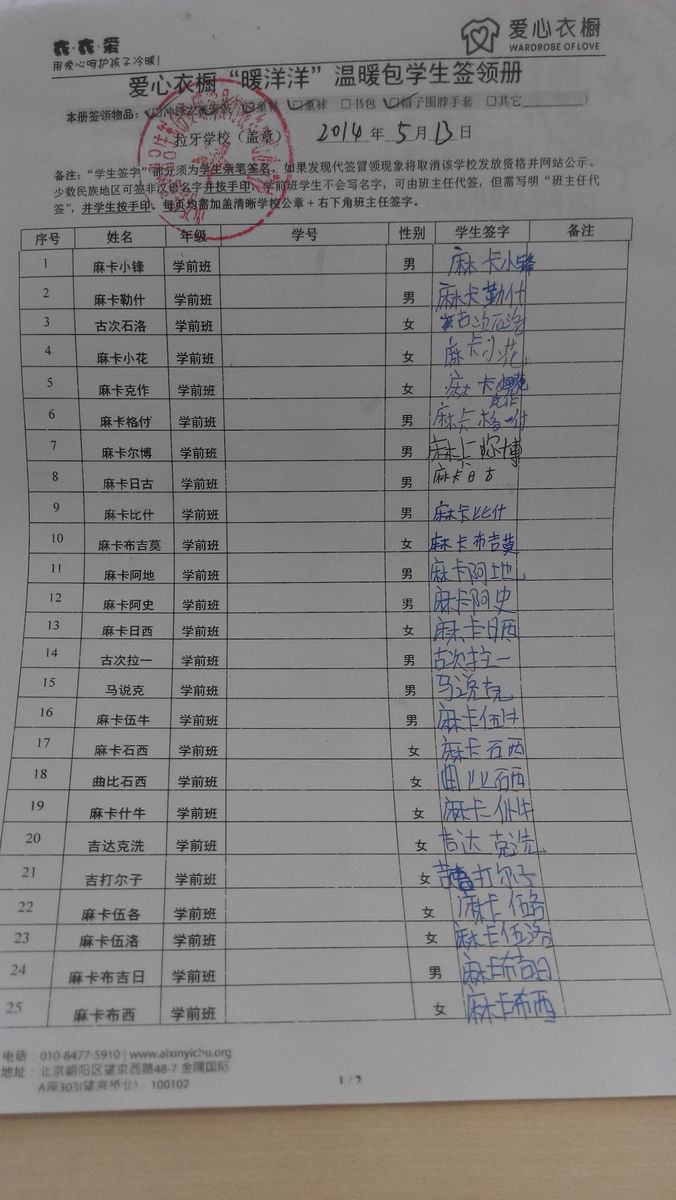 衣·衣·爱
用爱心呵护孩子冷暖!
爱心衣橱
WARDROBE OF LOVE
爱心衣橱“暖洋洋”温暖包学生签领册
本册签领物品: 童鞋 童袜 □书包 帽子围脖手套 □其它
拉牙学校(盖章) 2014年5月13日
备注:“学生签字”部分须为学生亲笔签名,如果发现代签冒领现象将取消该学校发放资格并网站公示。
少数民族地区可签非汉语名字并按手印,学前班学生不会写名字,可由班主任代签,但需写明“班主任代
签”,并学生按手印、每页均需加盖清晰学校公章+右下角班主任签字。
序号 姓名 年级 学号 性别 学生签字 备注
1 麻卡小锋 学前班 男 麻卡小锋
2 麻卡勒什 学前班 男 麻卡勒什
3 古次石洛 学前班 女 古次石洛
4 麻卡小花 学前班 女 麻卡小花
5 麻卡克作 学前班 女 麻卡克作
6 麻卡格付 学前班 男 麻卡格付
7 麻卡尔博 学前班 男 麻卡尔博
8 麻卡日古 学前班 男 麻卡日古
9 麻卡比什 学前班 男 麻卡比什
10 麻卡布吉莫 学前班 女 麻卡布吉莫
11 麻卡阿地 学前班 男 麻卡阿地
12 麻卡阿史 学前班 男 麻卡阿史
13 麻卡日西 学前班 女 麻卡日西
14 古次拉一 学前班 男 古次拉一
15 马说克 学前班 男 马说克
16 麻卡伍牛 学前班 男 麻卡伍牛
17 麻卡石西 学前班 女 麻卡石西
18 曲比石西 学前班 女 曲比石西
19 麻卡什牛 学前班 女 麻卡什牛
20 吉达克洗 学前班 女 吉达克洗
21 吉打尔子 学前班 女 吉打尔子
22 麻卡伍各 学前班 女 麻卡伍各
23 麻卡伍洛 学前班 女 麻卡伍洛
24 麻卡布吉日 学前班 男 麻卡布吉日
25 麻卡布西 学前班 女 麻卡布西
电话:010-8477-5910 | www.aixinyichu.org
地址:北京朝阳区望京西路48-7 金隅国际
A座303(望京桥北) 100102
1/2